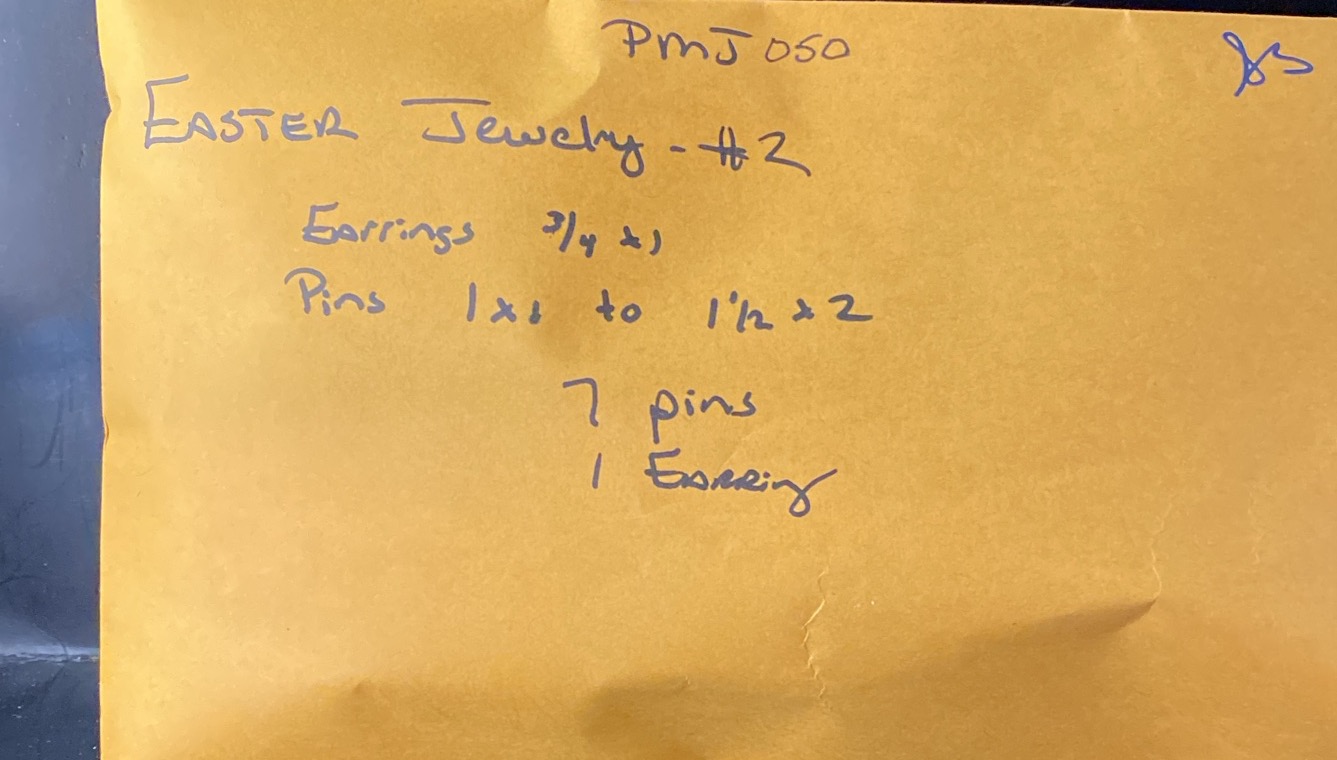 PMJ 050
EASTER Jewelry - #2
Earrings 3/4 x 1
Pins 1 x 1 to 1 1/2 x 2
7 pins
1 Earring